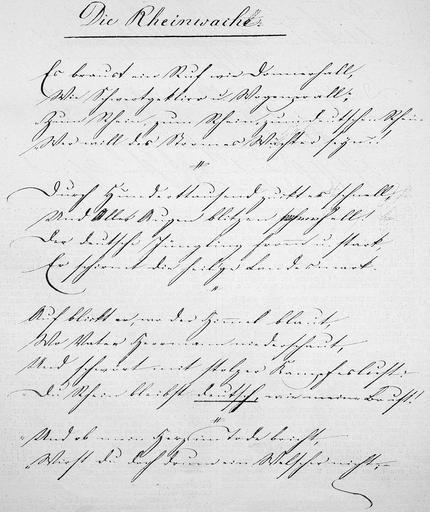 Die Rheinwacht.
Es braust ein Ruf wie Donnerhall,
Wie Schwertgeklirr u. Wogenprall:
Zum Rhein, zum Rhein, zum deutschen Rhein
Wer will des Stromes Wächter seyn?
Durch Hunderttausend zuckt es schnell,
Und Aller Augen blitzen hell!
Der deutsche Jüngling, fromm u. stark,
Er schirmt die heilge Landesmark.
Auf blickt er, wo der Himmel blaut,
Wo Vater Herrmann niederschaut,
Und schwört mit stolzer Kampfeslust:
"Du Rhein bleibst deutsch, wie meine Brust!
"Und ob mein Herz im Tode bricht,
"Wirst du doch drum ein Welscher nicht,